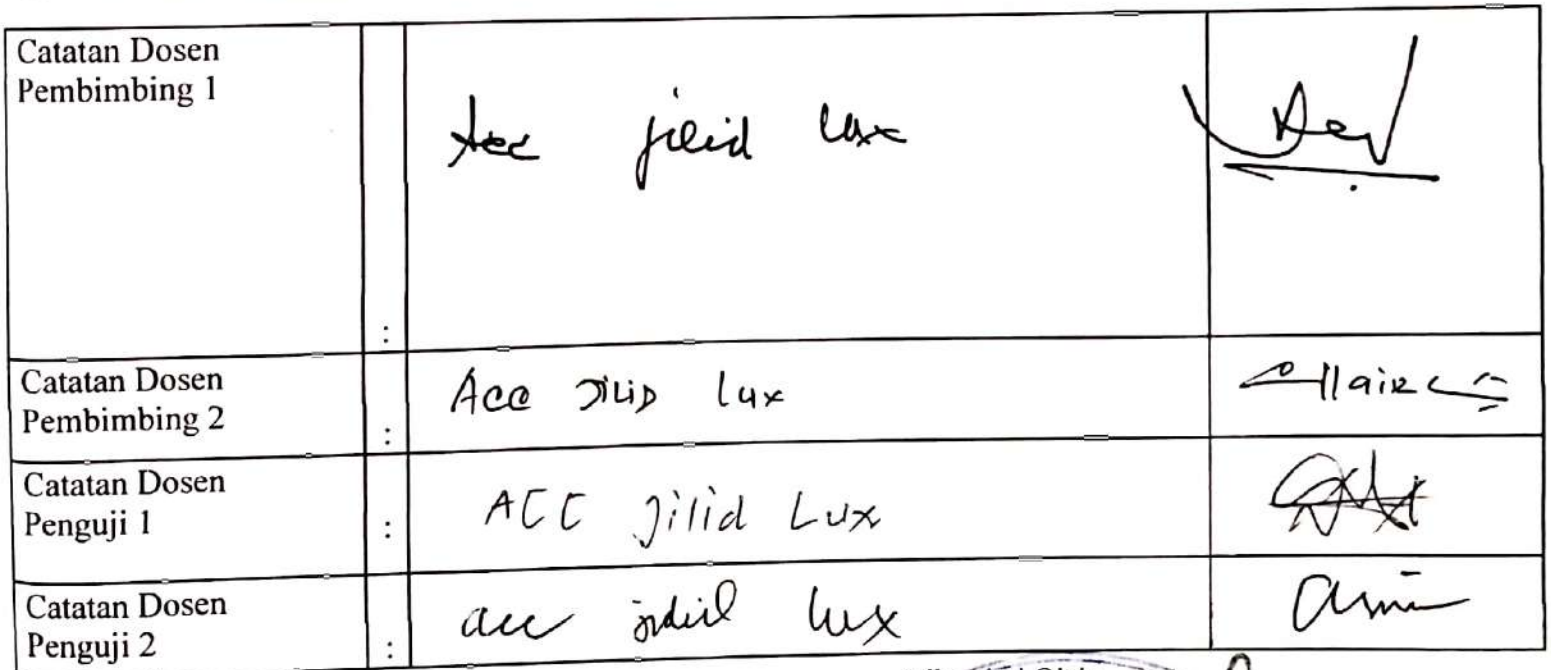 Catatan Dosen
Pembimbing 1
:
Acc jilid lux
Catatan Dosen
Pembimbing 2
:
Acc JiLiD lux
Catatan Dosen
Penguji 1
:
ACC Jilid Lux
Catatan Dosen
Penguji 2
:
acc jilid lux